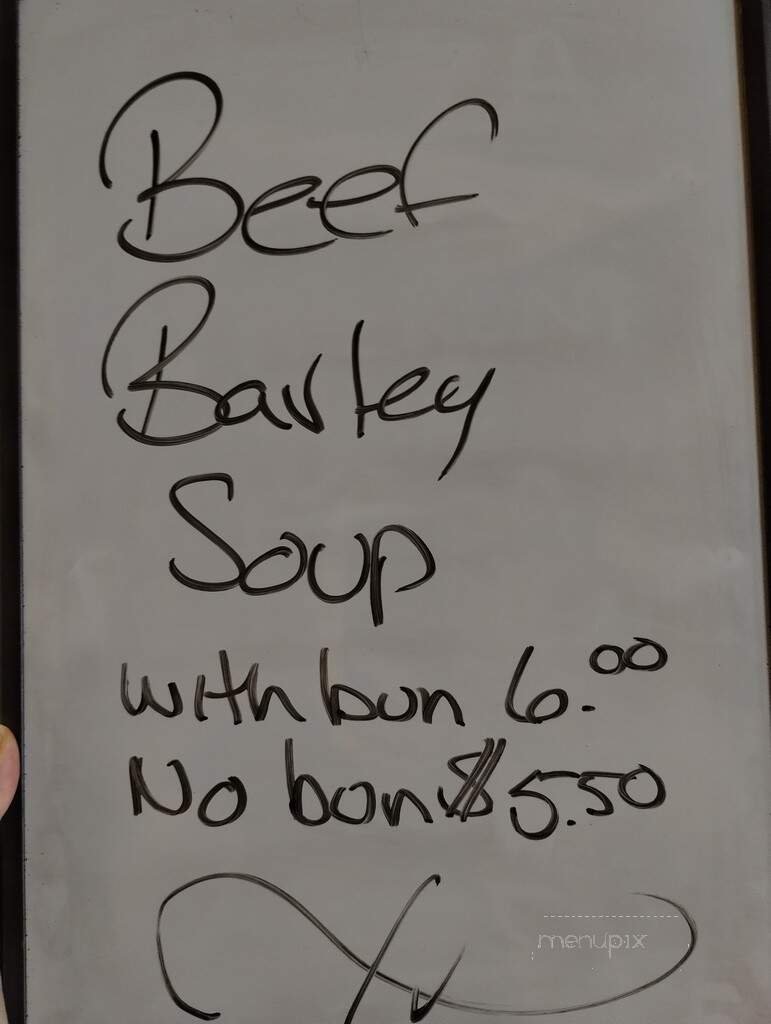 Beef
Barley
Soup
with bun 6.00
No bun $5.50
menupix